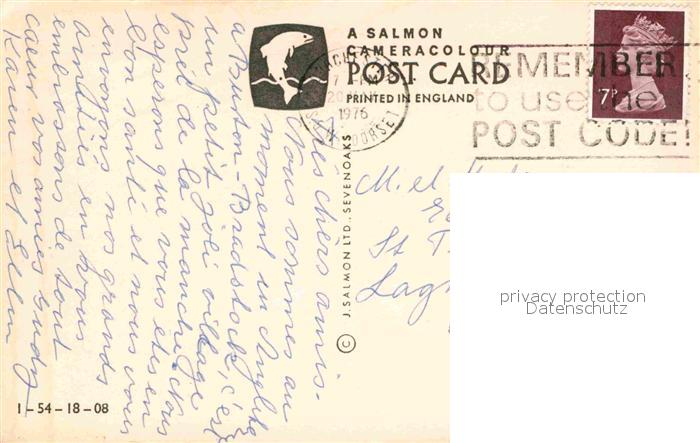 A SALMON
CAMERACOLOUR
POST CARD
PRINTED IN ENGLAND
1976
DORSET
REMEMBER
to use the
POST CODE!
7P
© J. SALMON LTD., SEVENOAKS
Très chers amis.
Nous sommes au
moment in Angleterre
a Burton-Bradstock, c'est
un petit joli village
près de la manche. Nous
esperons que vous etes en
bon santé et nous vous
envoions nos grands
amitiés en vous
embrassons de tout
cœur vos amies
Karin et
M. et
St T
Lag
privacy protection
Datenschutz
1-54-18-08